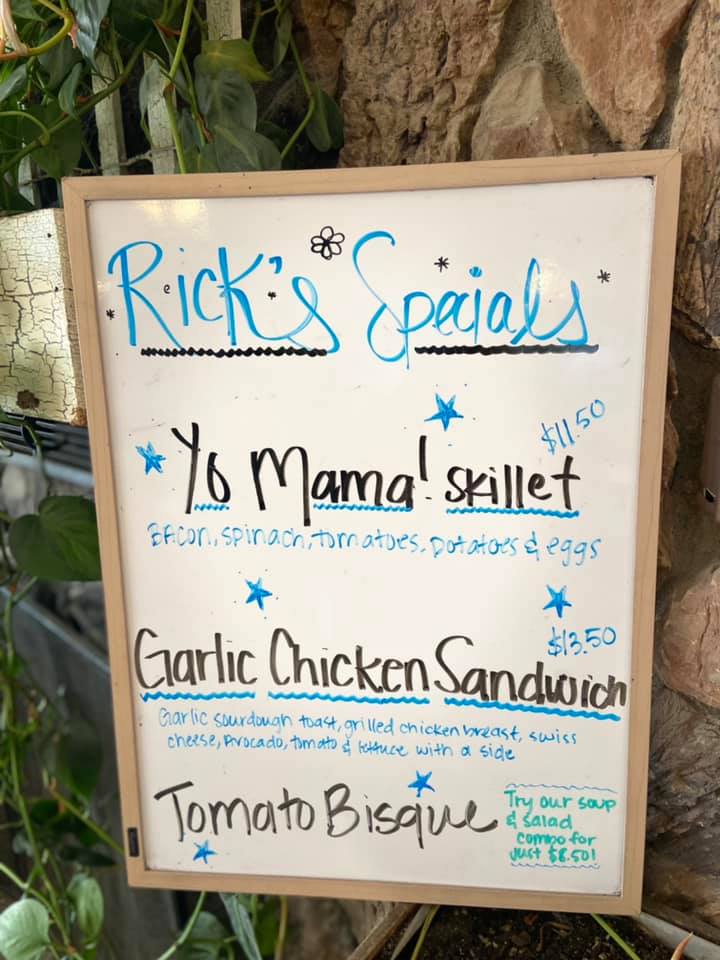 Rick's Specials
$11.50
Yo Mama! Skillet
Bacon, spinach, tomatoes, potatoes & eggs
$13.50
Garlic Chicken Sandwich
Garlic sourdough toast, grilled chicken breast, swiss
cheese, Avocado, tomato & lettuce with a side
Tomato Bisque
Try our soup
& salad
combo for
just $8.50!